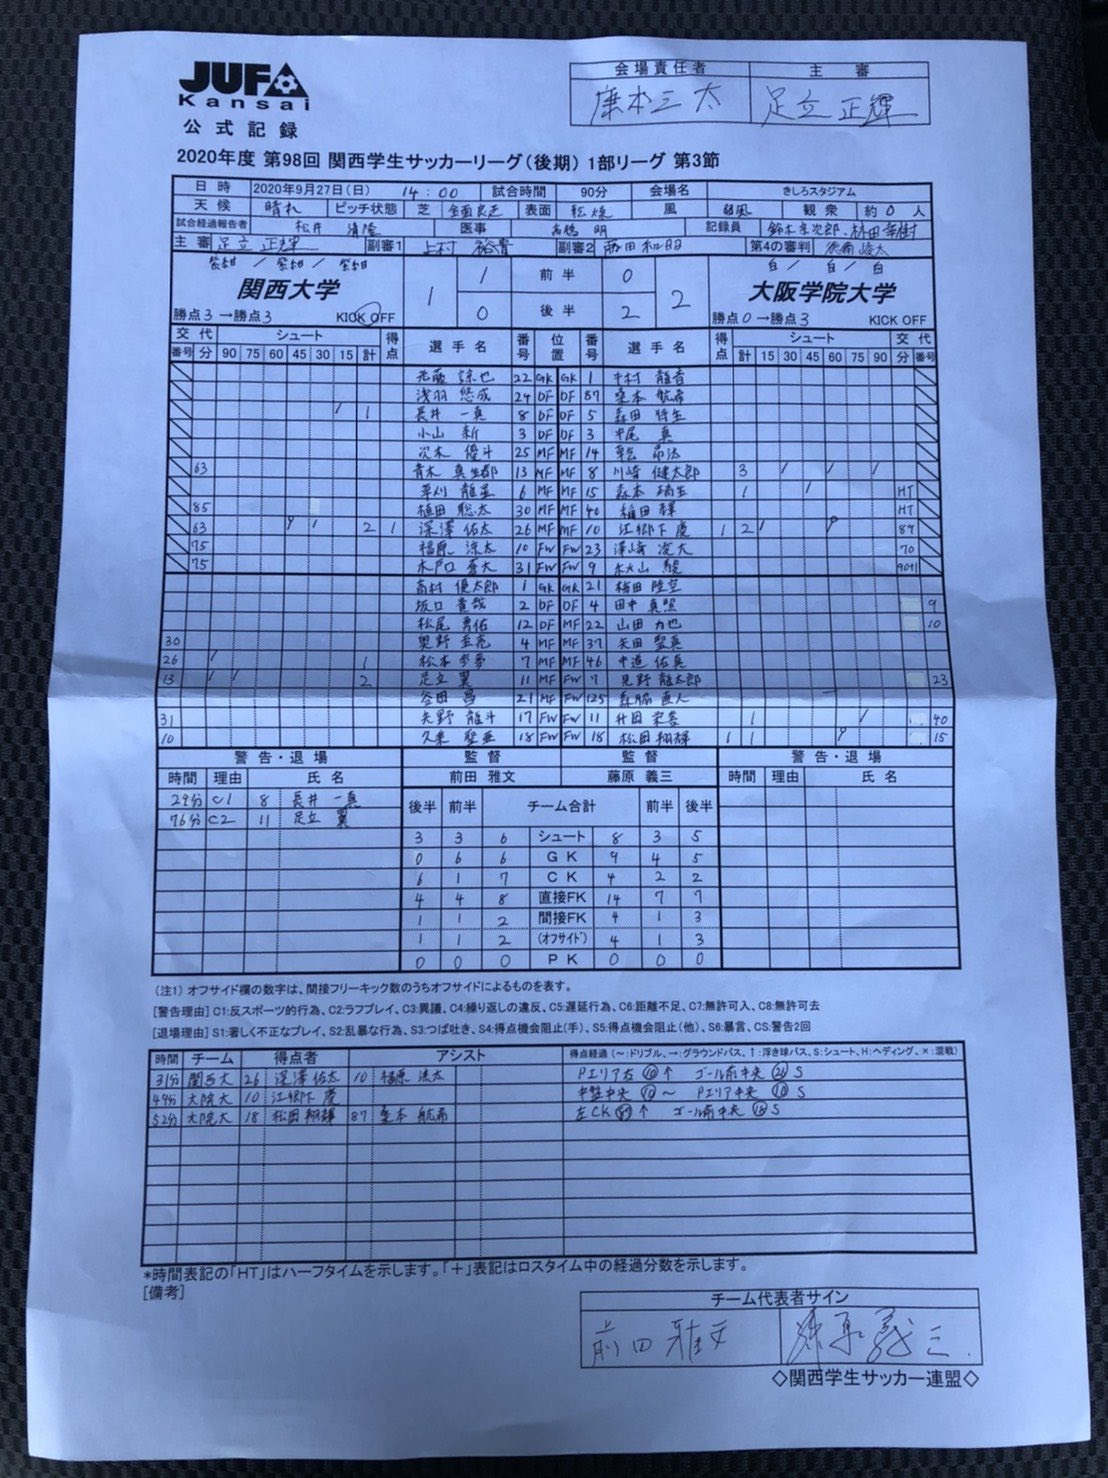 JUFA
Kansai
公式記録
会場責任者 主審
康本三太 足立正輝
2020年度 第98回 関西学生サッカーリーグ(後期) 1部リーグ 第3節
日時 2020年9月27日(日) 14:00 試合時間 90分 会場名 きしろスタジアム
天候 晴れ ピッチ状態 芝 全面良芝 表面 乾燥 風 弱風 観衆 約0人
試合経過報告者 松井 清隆 医事 高橋 明 記録員
主審 足立正輝 副審1 上村 裕貴 副審2 第4の審判
紫紺 / 紫紺 / 紫紺 1 1 前半 0 2 白 / 白 / 白
関西大学 0 後半 2 大阪学院大学
勝点3→勝点3 KICK OFF 勝点0→勝点3 KICK OFF
交代 シュート 得点 選手名 番号 位置 番号 選手名 得点 シュート 交代
番号 分 90 75 60 45 30 15 計 計 15 30 45 60 75 90 分 番号
22 GK GK 1 中村
浅羽 悠成 24 DF DF 87 桑本 航希
1 長井 一真 8 DF DF 5 森田 将生
小山 新 3 DF DF 3 中尾 真
次木 優斗 25 MF MF 14
63 青木 真生都 13 MF MF 8 川崎 健太郎 3
草刈 龍星 6 MF MF 15 森本 1 HT
85 植田 聡太 30 MF MF 40 稲田 HT
63 2 1 深澤 佑太 26 MF MF 10 江郷下 慶 1 2 87
75 福原 涼太 10 FW FW 23 澤崎 凌大 70
75 木戸口 蒼大 31 FW FW 9 秋山 駿 90+1
高村 優太郎 1 GK GK 21 梅田 陸空
坂口 2 DF DF 4 田中 真照 9
松尾 勇佑 12 DF MF 22 山田 力也 10
30 奥野 圭亮 4 MF MF 37 矢田
26 1 松本 歩夢 7 MF MF 46 中道 佑真
13 2 足立 翼 11 MF FW 7 見野 龍太郎 23
谷田 昌 21 MF FW 125 森脇 直人
31 矢野 龍斗 17 FW FW 11 1 40
10 久乗 聖亜 18 FW FW 18 松岡 翔輝 1 1 15
警告・退場 監督 監督 警告・退場
時間 理由 氏名 前田 雅文 藤原 義三 時間 理由 氏名
29分 C1 8 長井 一真
76分 C2 11 足立 翼
後半 前半 チーム合計 前半 後半
3 3 6 シュート 8 3 5
0 6 6 GK 9 4 5
6 1 7 CK 4 2 2
4 4 8 直接FK 14 7 7
1 1 2 間接FK 4 1 3
1 1 2 (オフサイド) 4 1 3
0 0 0 PK 0 0 0
(注1) オフサイド欄の数字は、間接フリーキック数のうちオフサイドによるものを表す。
[警告理由] C1:反スポーツ的行為、C2:ラフプレイ、C3:異議、C4:繰り返しの違反、C5:遅延行為、C6:距離不足、C7:無許可入、C8:無許可去
[退場理由] S1:著しく不正なプレイ、S2:乱暴な行為、S3:つば吐き、S4:得点機会阻止(手)、S5:得点機会阻止(他)、S6:暴言、CS:警告2回
時間 チーム 得点者 アシスト 得点経過 (〜:ドリブル、→:グラウンドパス、↑:浮き球パス、S:シュート、H:ヘディング、×:混戦)
31分 関西大 26 深澤 佑太 10 福原 涼太 Pエリア右⑩↑ ゴール前中央㉖S
49分 大院大 10 江郷下 慶 中盤中央⑩〜 Pエリア中央⑩S
52分 大院大 18 松岡 翔輝 87 桑本 航希 左CK(87)↑ ゴール前中央⑱S
*時間表記の「HT」はハーフタイムを示します。「+」表記はロスタイム中の経過分数を示します。
[備考]
チーム代表者サイン
前田雅文 藤原義三
◇関西学生サッカー連盟◇